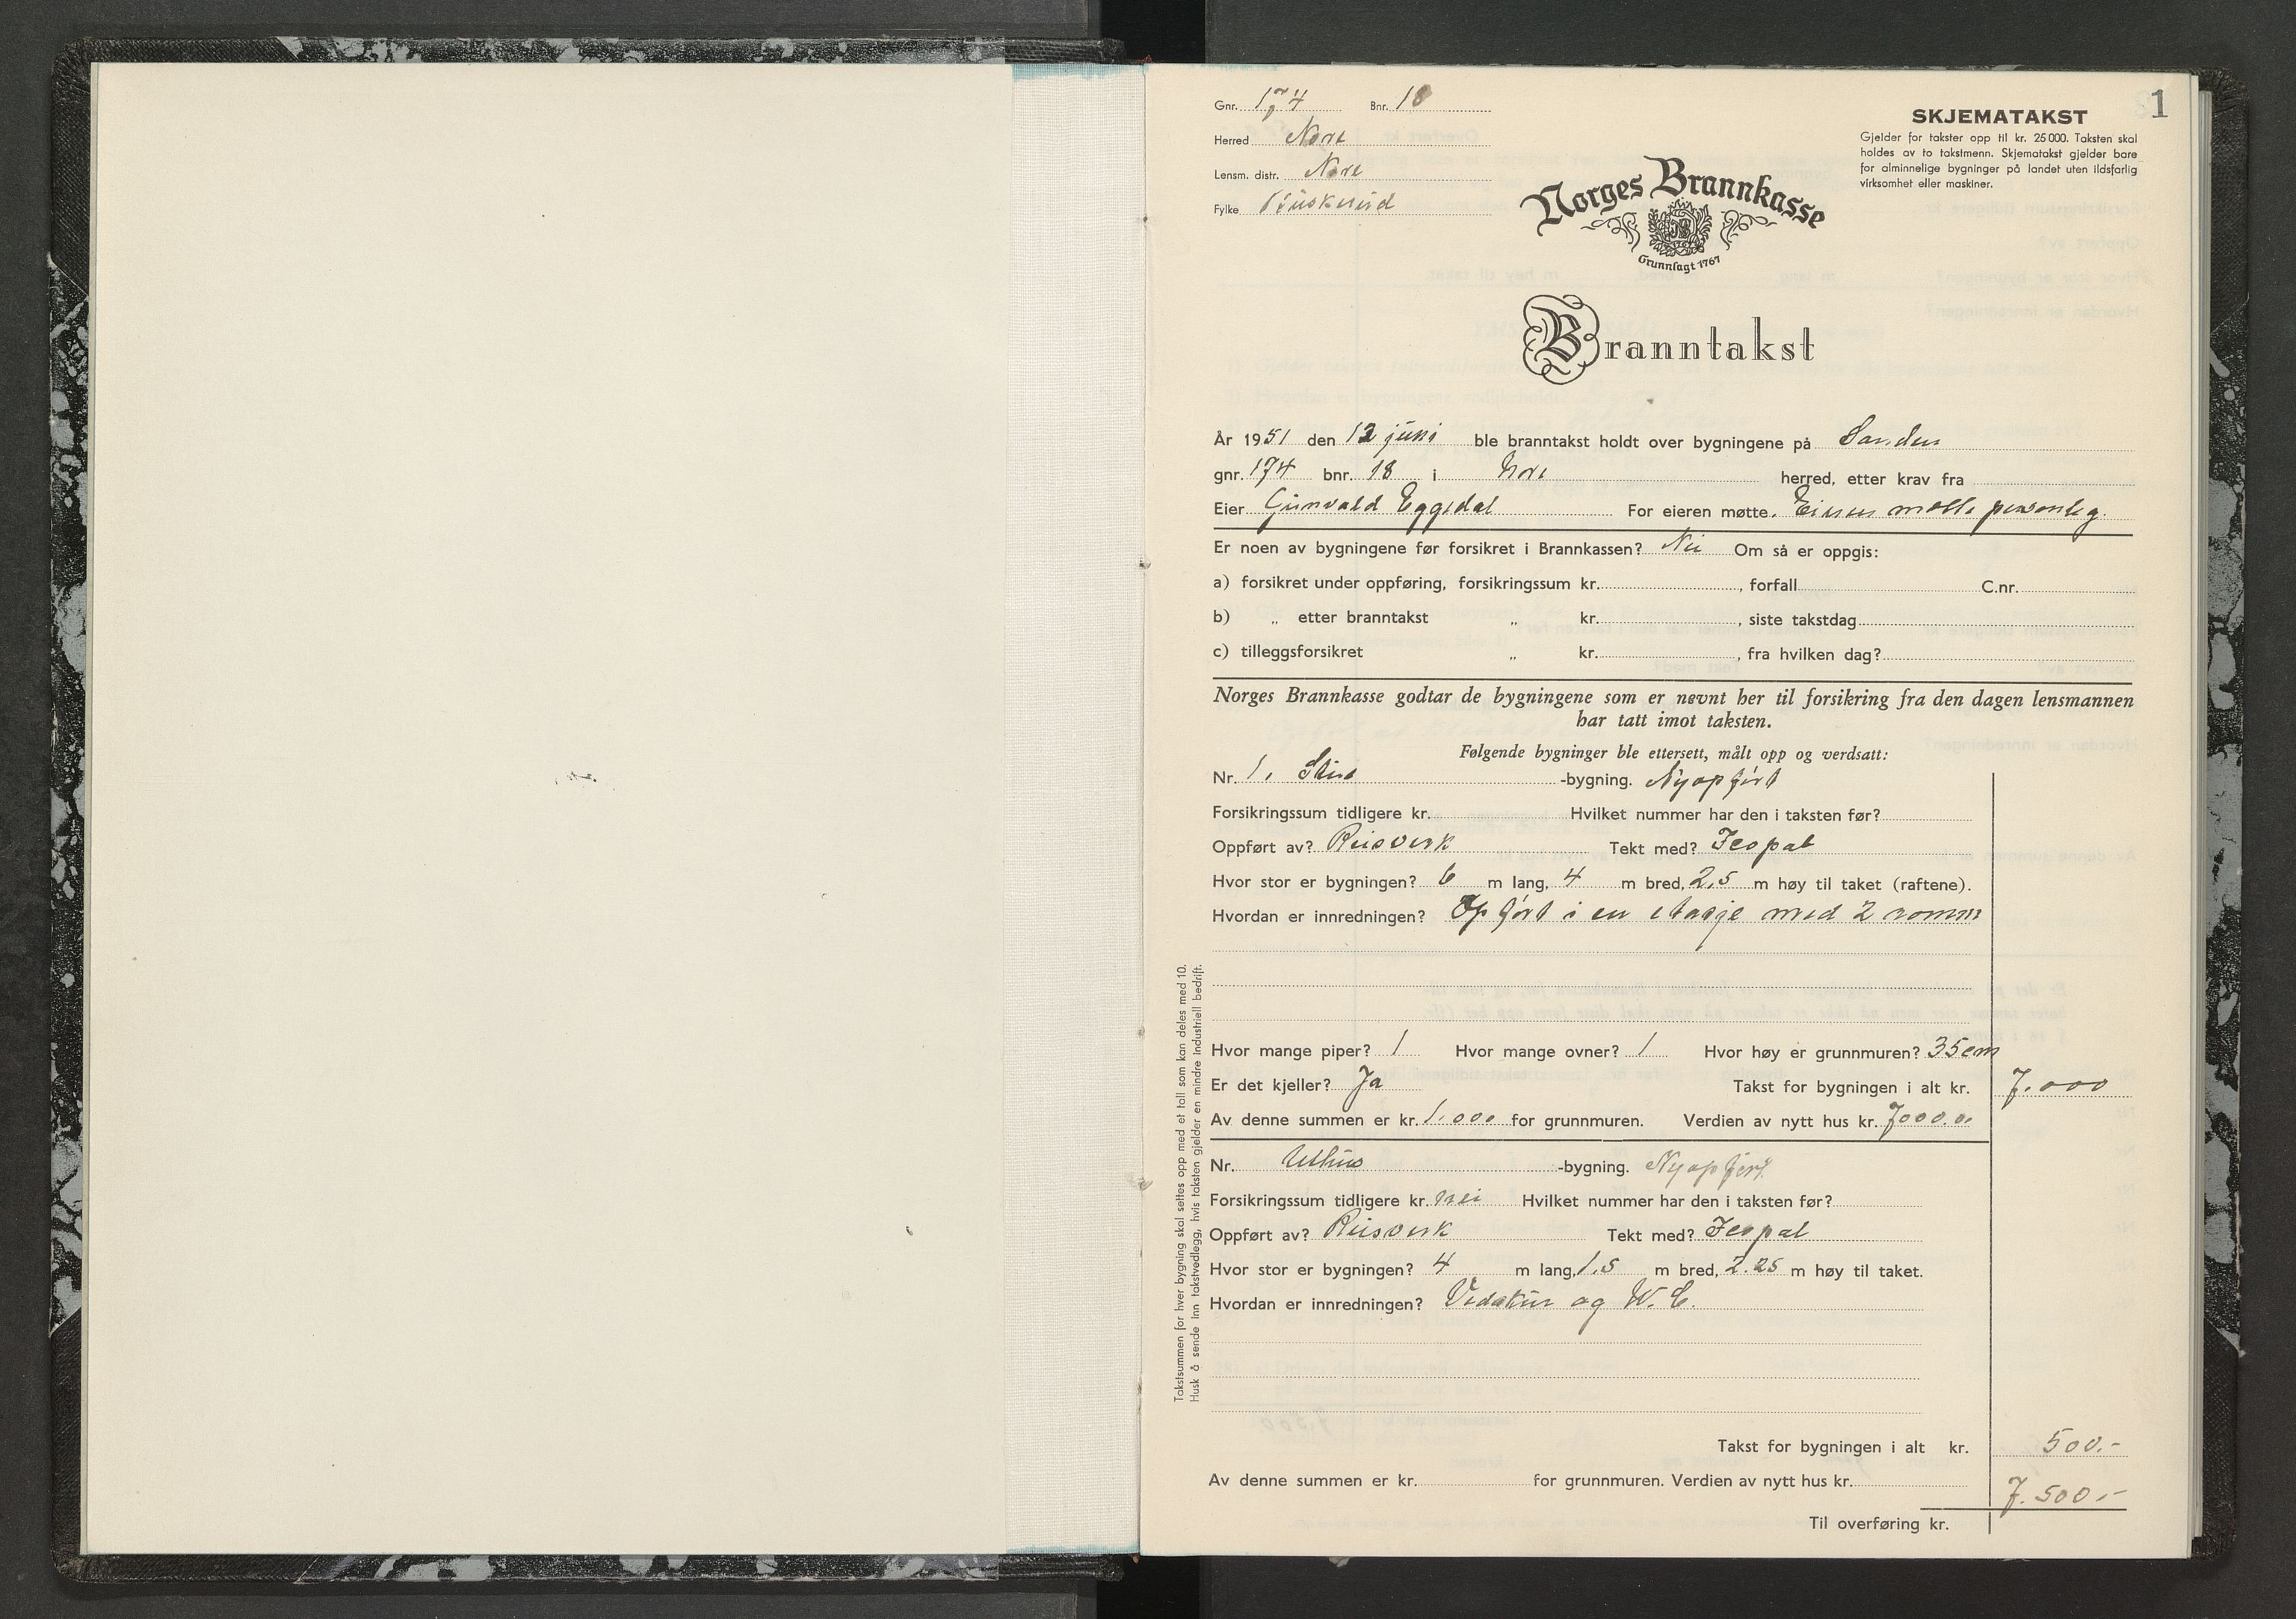 1
Gnr. 174 Bnr. 18
Herred Nore
Lensm. distr. Nore
Fylke Buskerud
SKJEMATAKST
Gjelder for takster opp til kr. 25 000. Taksten skal
holdes av to takstmenn. Skjematakst gjelder bare
for alminnelige bygninger på landet uten ildsfarlig
virksomhet eller maskiner.
Norges Brannkasse
Grunnlagt 1767
Branntakst
År 1951 den 12 juni ble branntakst holdt over bygningene på Sanden
gnr. 174 bnr. 18 i Nore herred, etter krav fra
Eier Gunvald Eggedal For eieren møtte. Eieren møtte personleg.
Er noen av bygningene før forsikret i Brannkassen? Nei Om så er oppgis:
a) forsikret under oppføring, forsikringssum kr. , forfall C.nr.
b) „ etter branntakst „ kr. , siste takstdag
c) tilleggsforsikret „ kr. , fra hvilken dag?
Norges Brannkasse godtar de bygningene som er nevnt her til forsikring fra den dagen lensmannen
har tatt imot taksten.
Følgende bygninger ble ettersett, målt opp og verdsatt:
Nr. 1. -bygning. Nyopført
Forsikringssum tidligere kr. Hvilket nummer har den i taksten før?
Oppført av? Reisverk Tekt med? Icopal
Hvor stor er bygningen? 6 m lang, 4 m bred, 2,5 m høy til taket (raftene).
Hvordan er innredningen? Opført i en etasje med 2 romm
Hvor mange piper? 1 Hvor mange ovner? 1 Hvor høy er grunnmuren? 35 cm
Er det kjeller? Ja Takst for bygningen i alt kr. 7.000
Av denne summen er kr. 1.000 for grunnmuren. Verdien av nytt hus kr. 7000.00
Nr. Uthus -bygning. Nyopført
Forsikringssum tidligere kr. nei Hvilket nummer har den i taksten før?
Oppført av? Reisverk Tekt med? Icopal
Hvor stor er bygningen? 4 m lang, 1.5 m bred, 2.25 m høy til taket.
Hvordan er innredningen? Vedskur og W.C.
Takst for bygningen i alt kr. 500.-
Av denne summen er kr. for grunnmuren. Verdien av nytt hus kr.
7.500.-
Til overføring kr.
Takstsummen for hver bygning skal settes opp med et tall som kan deles med 10.
Husk å sende inn takstvedlegg, hvis taksten gjelder en mindre industriell bedrift.